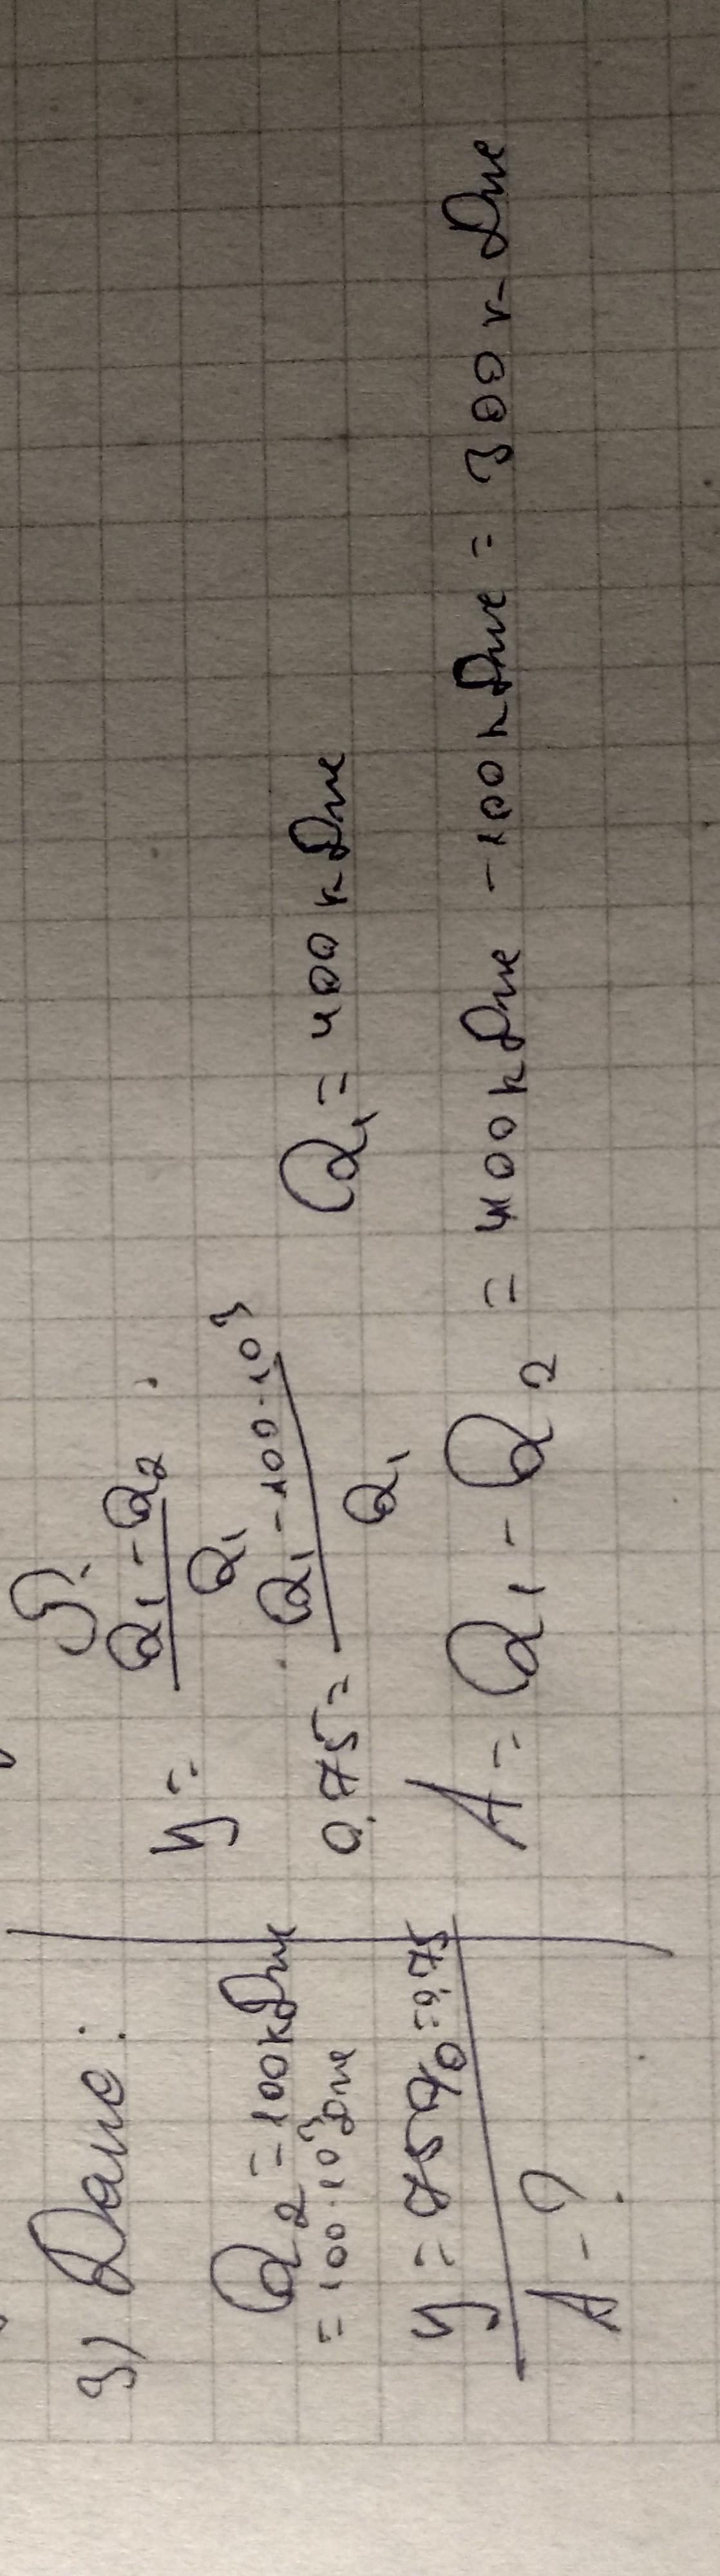 3) Дано:
Q₂ = 100кДж
= 100·10³Дж
η = 75% = 0,75
A - ?
η = (Q₁ - Q₂) / Q₁
0,75 = (Q₁ - 100·10³) / Q₁
Q₁ = 400кДж
A = Q₁ - Q₂ = 400кДж - 100кДж = 300кДж